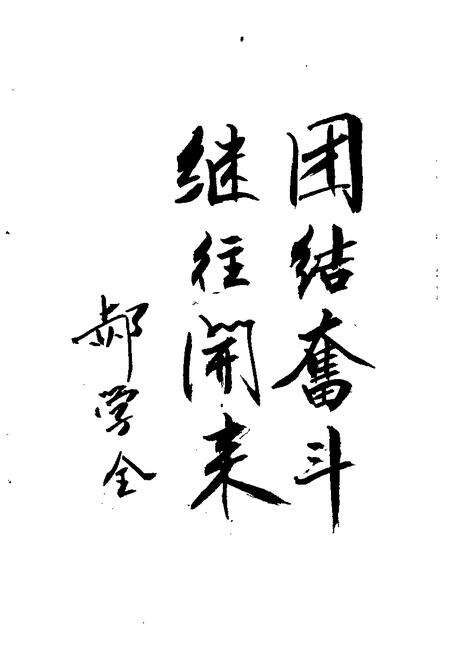 团结奮斗
继往開来
郝学全